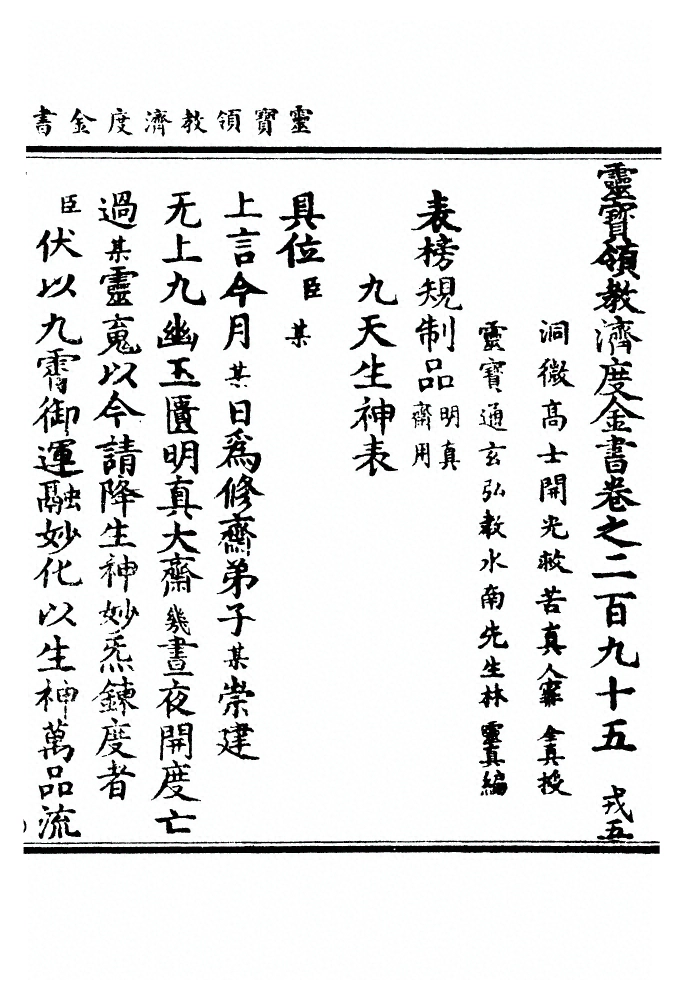 靈寶領教濟度金書
靈寶領教濟度金書卷之二百九十五 戎五
洞微高士開光救苦真人甯全真授
靈寶通玄弘教水南先生林靈真編
表榜規制品明真齋用
九天生神表
具位臣某
上言今月某日爲修齋弟子某崇建
无上九幽玉匱明真大齋幾晝夜開度亡
過某靈䰟以今請降生神妙炁鍊度者
臣伏以九霄御運融妙化以生神萬品流